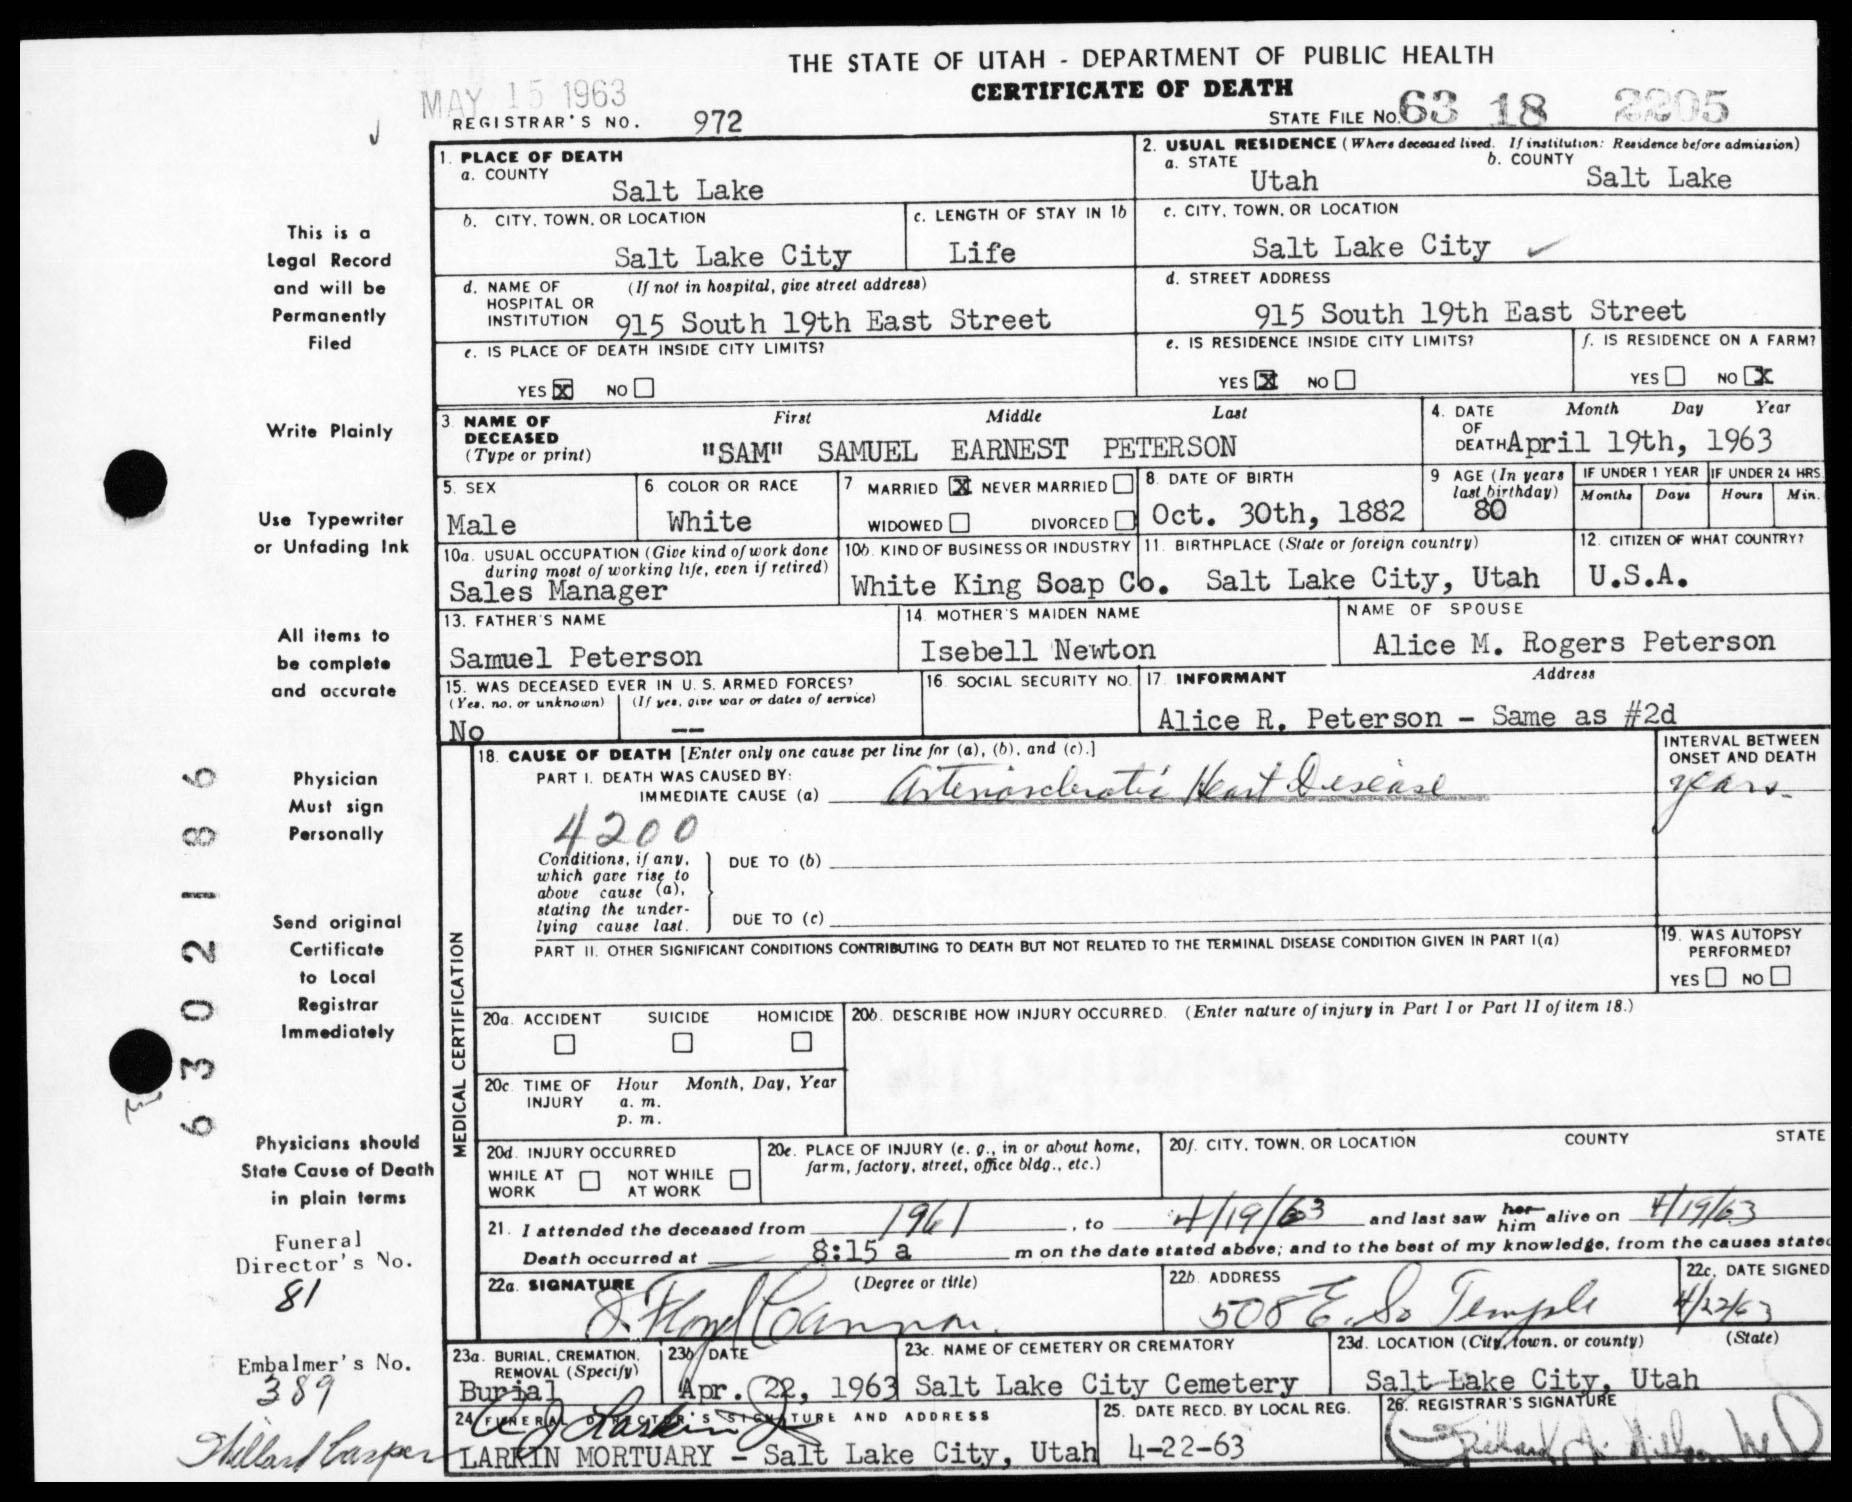 THE STATE OF UTAH - DEPARTMENT OF PUBLIC HEALTH
CERTIFICATE OF DEATH
MAY 15 1963
REGISTRAR'S NO. 972
STATE FILE NO. 63 18 2205
1. PLACE OF DEATH
a. COUNTY
Salt Lake
2. USUAL RESIDENCE (Where deceased lived. If institution: Residence before admission)
a. STATE
Utah
b. COUNTY
Salt Lake
b. CITY, TOWN, OR LOCATION
Salt Lake City
c. LENGTH OF STAY IN 1b
Life
c. CITY, TOWN, OR LOCATION
Salt Lake City
d. NAME OF HOSPITAL OR INSTITUTION
(If not in hospital, give street address)
915 South 19th East Street
d. STREET ADDRESS
915 South 19th East Street
e. IS PLACE OF DEATH INSIDE CITY LIMITS?
YES X NO
e. IS RESIDENCE INSIDE CITY LIMITS?
YES X NO
f. IS RESIDENCE ON A FARM?
YES NO X
3. NAME OF DECEASED (Type or print)
First Middle Last
"SAM" SAMUEL EARNEST PETERSON
4. DATE OF DEATH
Month Day Year
April 19th, 1963
5. SEX
Male
6. COLOR OR RACE
White
7. MARRIED X NEVER MARRIED
WIDOWED DIVORCED
8. DATE OF BIRTH
Oct. 30th, 1882
9 AGE (In years last birthday)
80
IF UNDER 1 YEAR
Months Days
IF UNDER 24 HRS.
Hours Min.
10a. USUAL OCCUPATION (Give kind of work done during most of working life, even if retired)
Sales Manager
10b. KIND OF BUSINESS OR INDUSTRY
White King Soap Co.
11. BIRTHPLACE (State or foreign country)
Salt Lake City, Utah
12. CITIZEN OF WHAT COUNTRY?
U.S.A.
13. FATHER'S NAME
Samuel Peterson
14. MOTHER'S MAIDEN NAME
Isebell Newton
NAME OF SPOUSE
Alice M. Rogers Peterson
15. WAS DECEASED EVER IN U.S. ARMED FORCES?
(Yes, no, or unknown) (If yes, give war or dates of service)
No --
16. SOCIAL SECURITY NO.
17. INFORMANT Address
Alice R. Peterson - Same as #2d
18. CAUSE OF DEATH [Enter only one cause per line for (a), (b), and (c).]
PART I. DEATH WAS CAUSED BY:
IMMEDIATE CAUSE (a) Arteriosclerotic Heart Disease
INTERVAL BETWEEN ONSET AND DEATH
years
4200
Conditions, if any, which gave rise to above cause (a), stating the underlying cause last.
DUE TO (b)
DUE TO (c)
PART II. OTHER SIGNIFICANT CONDITIONS CONTRIBUTING TO DEATH BUT NOT RELATED TO THE TERMINAL DISEASE CONDITION GIVEN IN PART I(a)
19. WAS AUTOPSY PERFORMED?
YES NO
MEDICAL CERTIFICATION
20a. ACCIDENT SUICIDE HOMICIDE
20b. DESCRIBE HOW INJURY OCCURRED. (Enter nature of injury in Part I or Part II of item 18.)
20c. TIME OF INJURY Hour Month, Day, Year
a. m.
p. m.
20d. INJURY OCCURRED
WHILE AT WORK NOT WHILE AT WORK
20e. PLACE OF INJURY (e. g., in or about home, farm, factory, street, office bldg., etc.)
20f. CITY, TOWN, OR LOCATION COUNTY STATE
21. I attended the deceased from 1961, to 4/19/63 and last saw her him alive on 4/19/63
Death occurred at 8:15 a m on the date stated above; and to the best of my knowledge, from the causes stated
22a. SIGNATURE (Degree or title)
J. Floyd Cannon
22b. ADDRESS
508 E. So Temple
22c. DATE SIGNED
4/22/63
23a. BURIAL, CREMATION, REMOVAL (Specify)
Burial
23b. DATE
Apr. 22, 1963
23c. NAME OF CEMETERY OR CREMATORY
Salt Lake City Cemetery
23d. LOCATION (City, town, or county) (State)
Salt Lake City, Utah
24. FUNERAL DIRECTOR'S SIGNATURE AND ADDRESS
LARKIN MORTUARY - Salt Lake City, Utah
25. DATE RECD. BY LOCAL REG.
4-22-63
26. REGISTRAR'S SIGNATURE
This is a
Legal Record
and will be
Permanently
Filed
Write Plainly
Use Typewriter
or Unfading Ink
All items to
be complete
and accurate
Physician
Must sign
Personally
Send original
Certificate
to Local
Registrar
Immediately
Physicians should
State Cause of Death
in plain terms
Funeral
Director's No.
81
Embalmer's No.
389
6302186